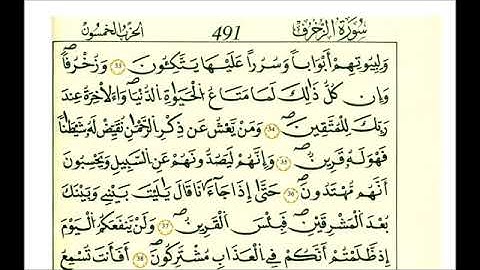 سورة الزخرف 491 الحزب الخمسون
وَلِبُيُوتِهِمُۥٓ أَبْوَٰباً وَسُرُراً عَلَيْهَا يَتَّكِـُٔونَۖ 33 وَزُخْرُفاًۖ
وَإِن كُلُّ ذَٰلِكَ لَمَا مَتَٰعُ الْحَيَوٰةِ الدُّنْيَاۖ وَالَاخِرَةُ عِندَ
رَبِّكَ لِلْمُتَّقِينَۖ 34 وَمَنْ يَّعْشُ عَن ذِكْرِ الرَّحْمَٰنِ نُقَيِّضْ لَهُۥ شَيْطَٰناً
فَهُوَ لَهُۥ قَرِينٌۖ 35 وَإِنَّهُمْ لَيَصُدُّونَهُمْ عَنِ السَّبِيلِ وَيَحْسِبُونَ
أَنَّهُم مُّهْتَدُونَۖ 36 حَتَّىٰٓ إِذَا جَآءَٰنَا قَالَ يَٰلَيْتَ بَيْنِے وَبَيْنَكَ
بُعْدَ الْمَشْرِقَيْنِۖ فَبِيسَ الْقَرِينُۖ 37 وَلَنْ يَّنفَعَكُمُ الْيَوْمَ
إِذ ظَّلَمْتُمُۥٓ أَنَّكُمْ فِے الْعَذَابِ مُشْتَرِكُونَۖ 38 أَفَأَنتَ تُسْمِعُ